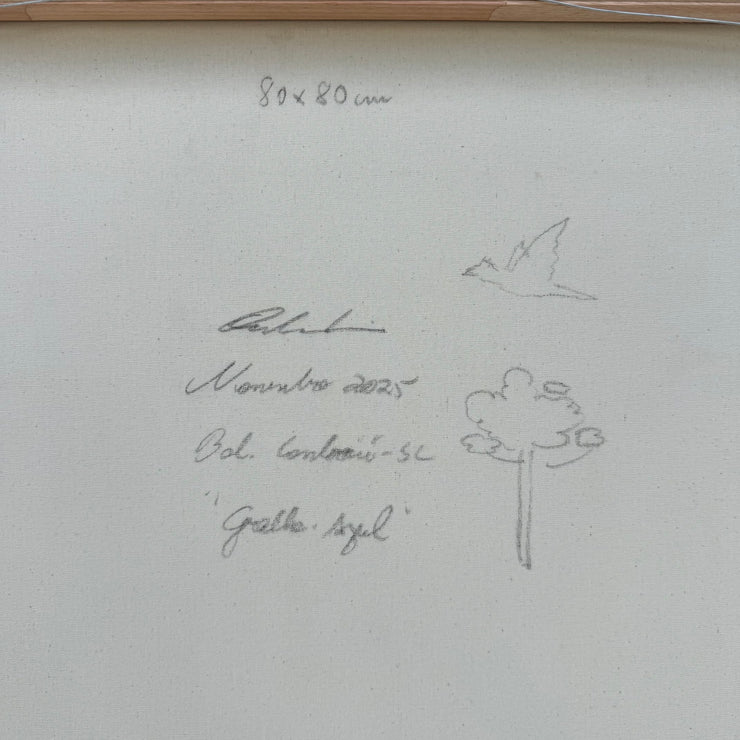 80x80cm
Novembro 2025
Bal. Camboriú-SC
"Gralha-Azul"